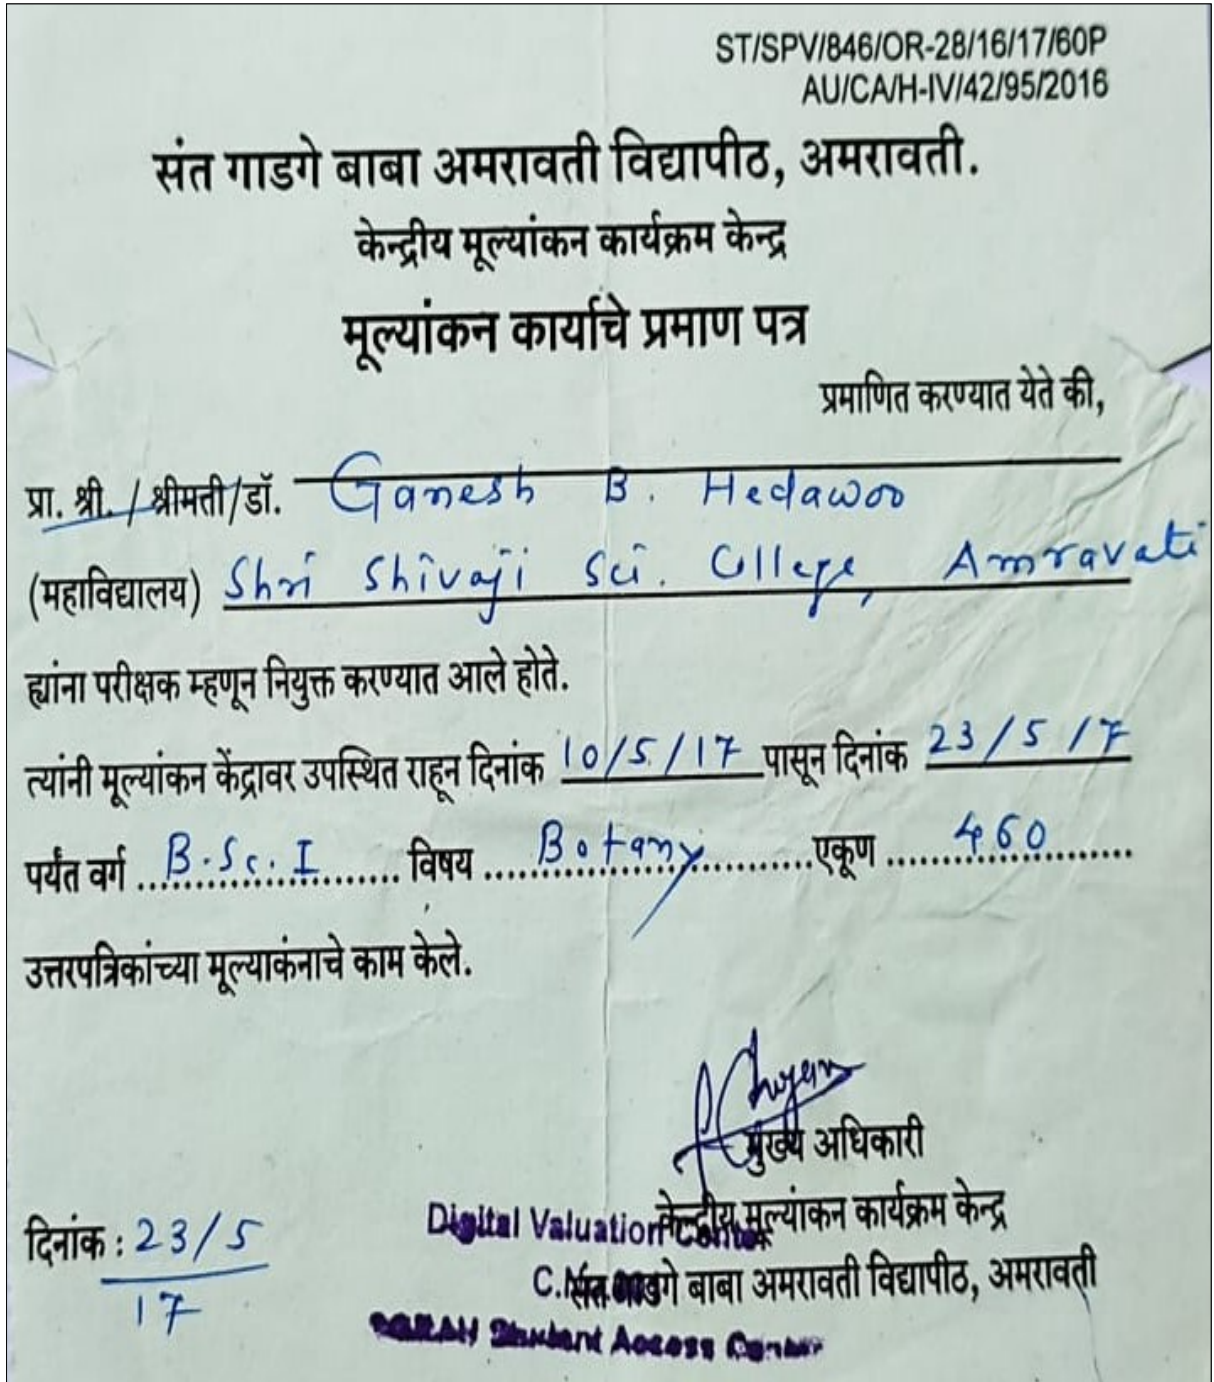 ST/SPV/846/OR-28/16/17/60P
AU/CA/H-IV/42/95/2016
संत गाडगे बाबा अमरावती विद्यापीठ, अमरावती.
केन्द्रीय मूल्यांकन कार्यक्रम केन्द्र
मूल्यांकन कार्याचे प्रमाण पत्र
प्रमाणित करण्यात येते की,
प्रा. श्री. / श्रीमती/डॉ. Ganesh B. Hedawoo
(महाविद्यालय) Shri Shivaji Sci. College, Amravati
ह्यांना परीक्षक म्हणून नियुक्त करण्यात आले होते.
त्यांनी मूल्यांकन केंद्रावर उपस्थित राहून दिनांक 10/5/17 पासून दिनांक 23/5/7
पर्यंत वर्ग B.Sc.I विषय Botany एकूण 460
उत्तरपत्रिकांच्या मूल्याकंनाचे काम केले.
मुख्य अधिकारी
केन्द्रीय मूल्यांकन कार्यक्रम केन्द्र
Digital Valuation Center
दिनांक : 23/5
17
संत गाडगे बाबा अमरावती विद्यापीठ, अमरावती
Student Access Center